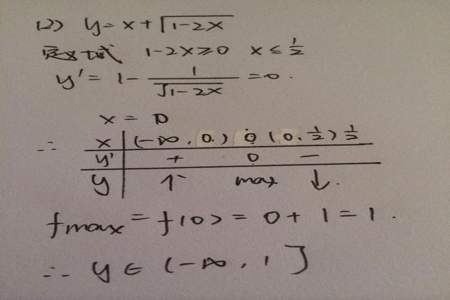 (2) y=x+√(1-2x)
定义域 1-2x≥0 x≤1/2
y'=1-1/√(1-2x)=0.
x=0
∴ x (-∞,0) 0 (0,1/2) 1/2
y' + 0 -
y ↑ max ↓.
fmax=f(0)=0+1=1.
∴ y∈(-∞,1]